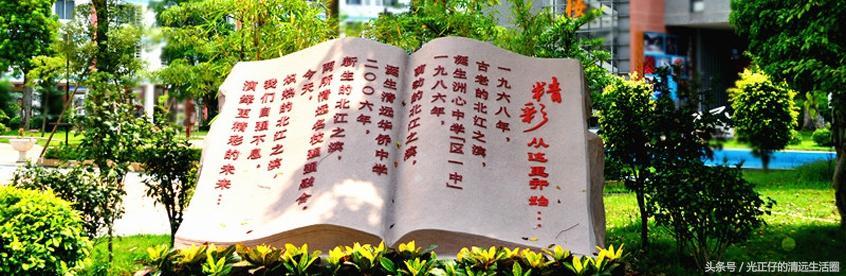 精彩从这里开始…
一九六八年，
古老的北江之滨，
诞生洲心中学「区一中」
一九八六年，
的北江之滨，
诞生清远华侨中学
二〇〇六年，
新生的北江之滨，
两所清远名校强强融合。
今天，
的北江之滨，
我们自强不息，
演绎更精彩的未来…
头条号／光正仔的清远生活圈